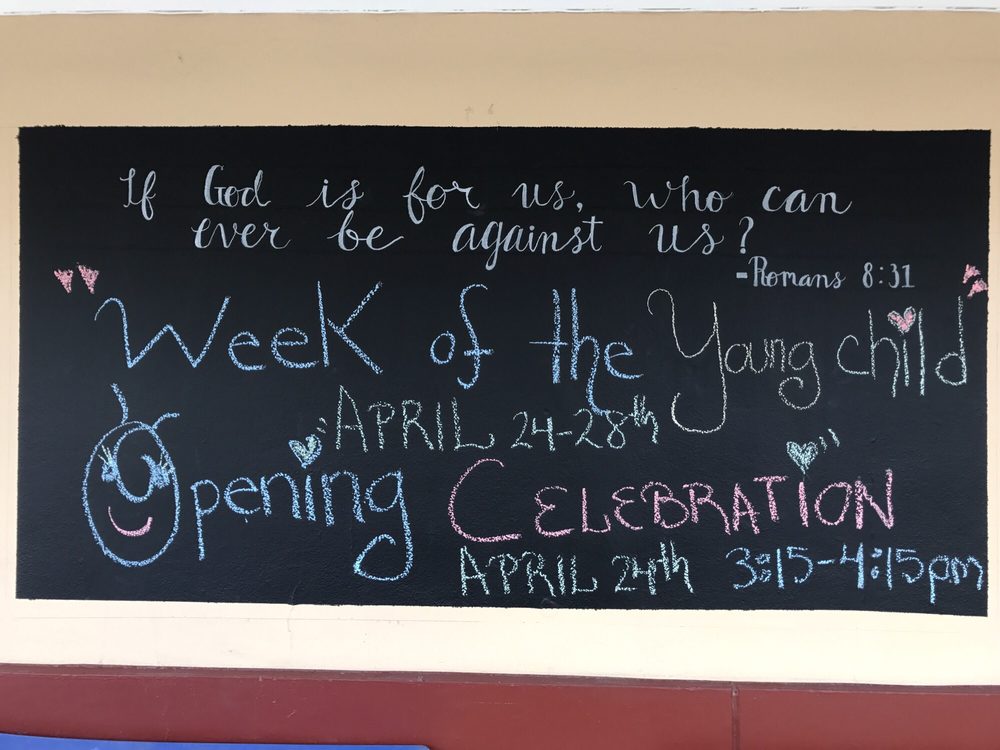 If God is for us, who can
ever be against us?
-Romans 8:31
"Week of the Young child"
APRIL 24-28th
Opening CELEBRATION
APRIL 24th 3:15-4:15pm